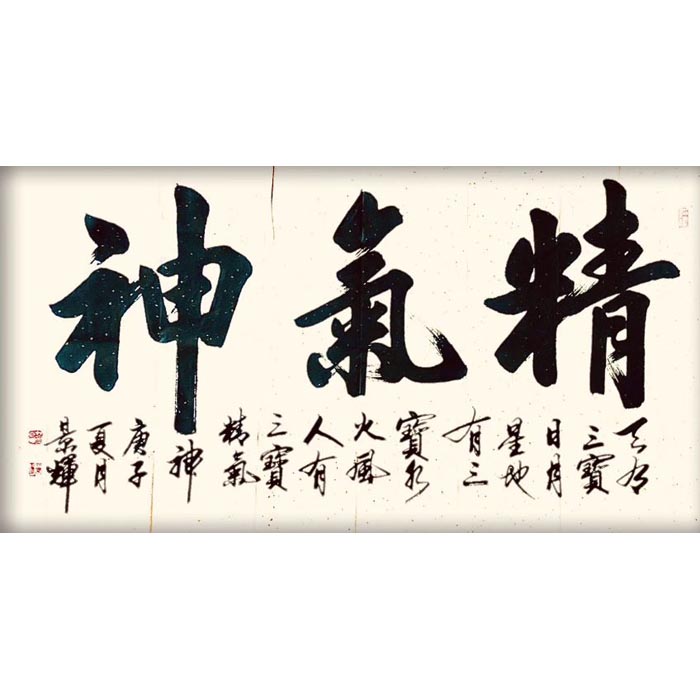 精氣神
天有
三寶
日月
星地
有三
寶水
火風
人有
三寶
精氣
神
庚子
夏月
景輝